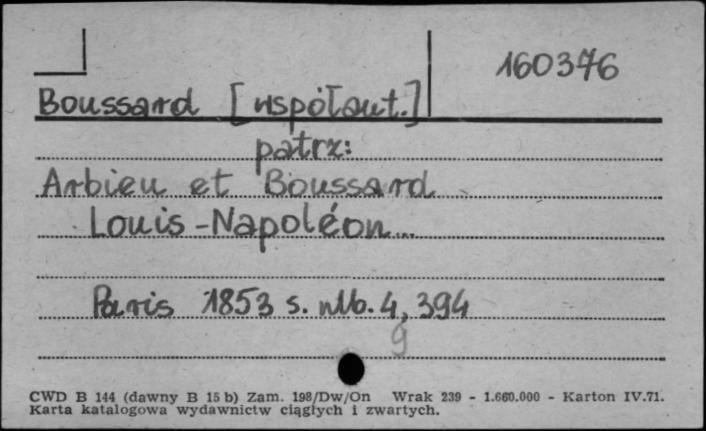 160376
Boussard [współaut.]
patrz:
Arbieu et Boussard
Louis-Napoléon...
Paris 1853 s. nlb. 4, 394
9
CWD B 144 (dawny B 15 b) Zam. 198/Dw/On Wrak 239 - 1.660.000 - Karton IV.71.
Karta katalogowa wydawnictw ciągłych i zwartych.